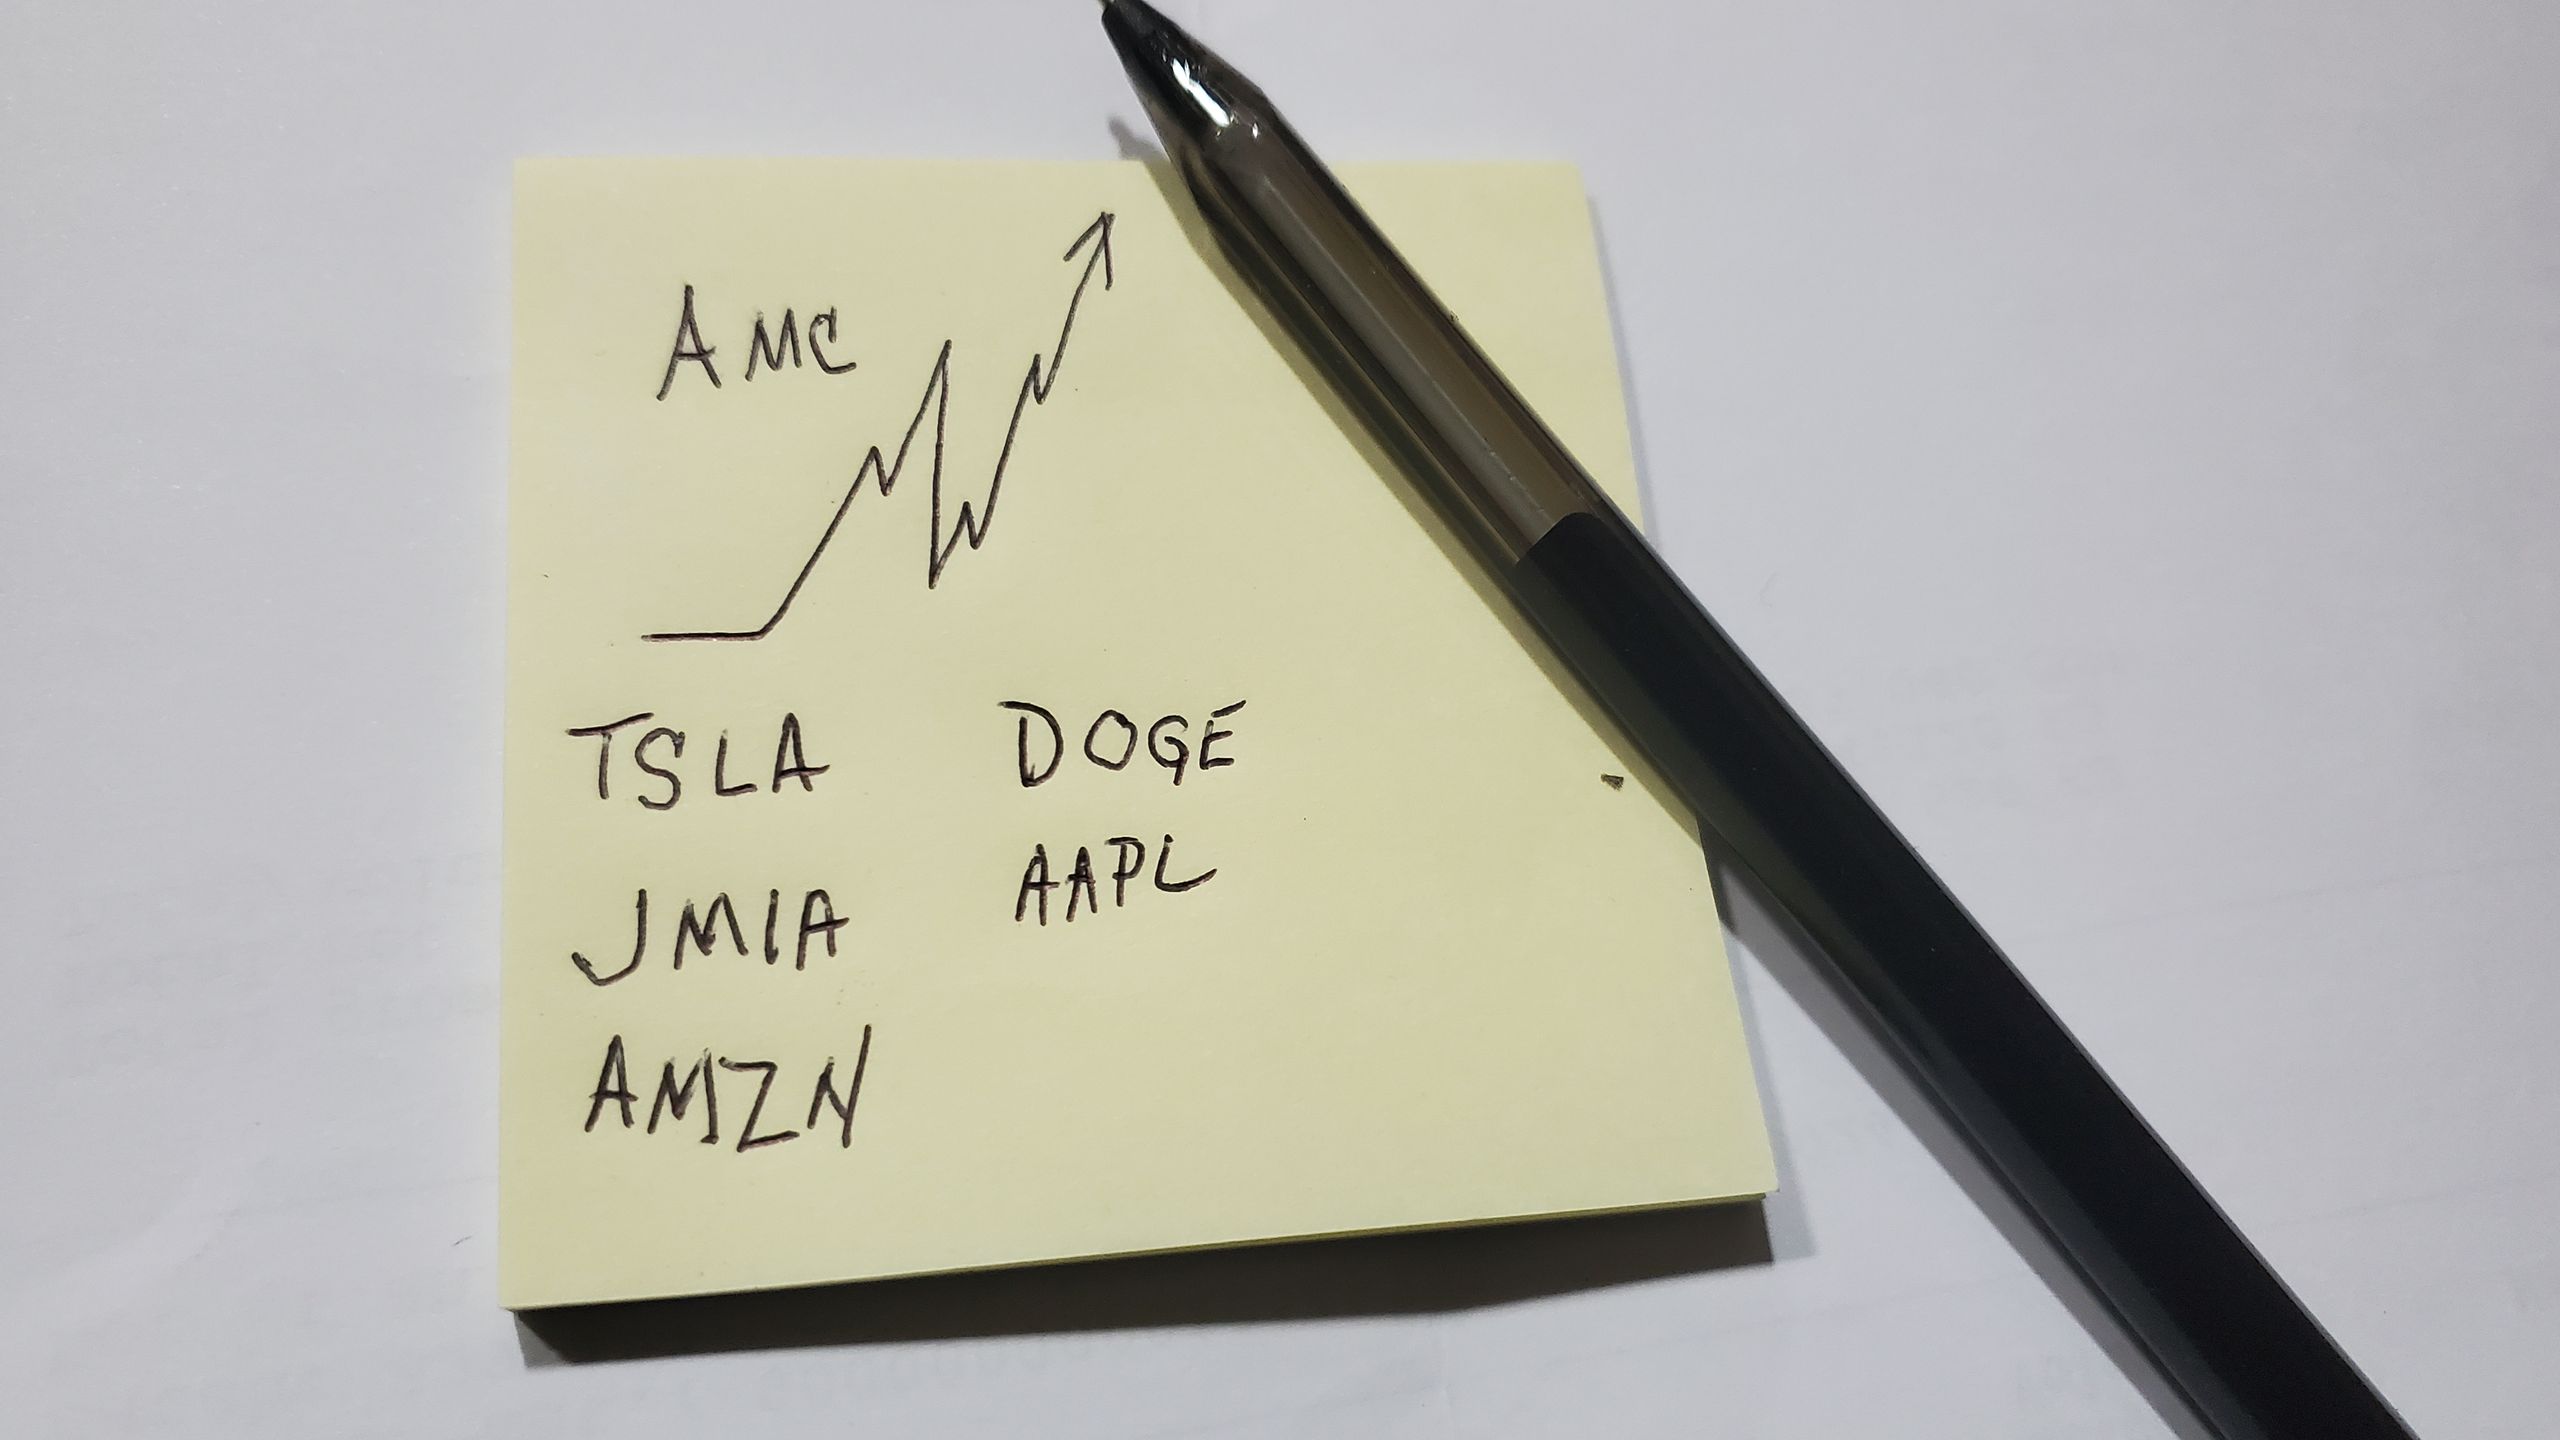 AMC
TSLA DOGE
JMIA AAPL
AMZN